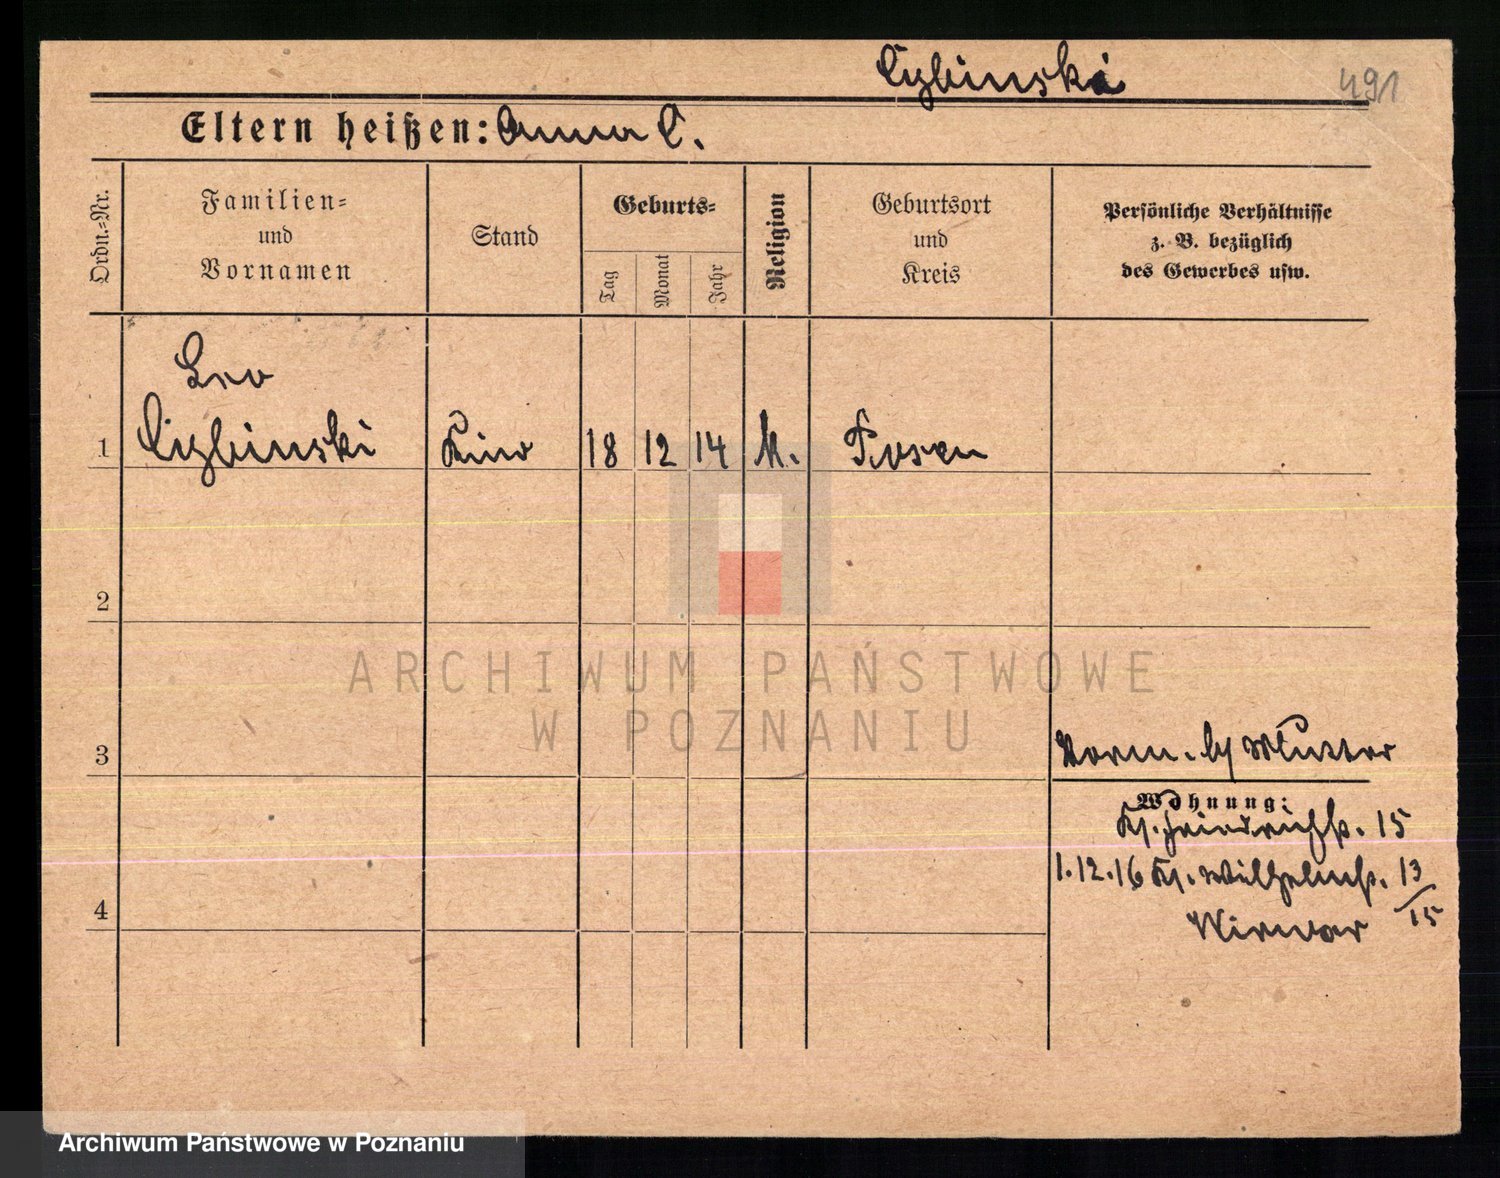 Cybinski
491
Eltern heißen: Anna C.
Ordn.-Nr.
Familien-
und
Vornamen
Stand
Geburts-
Tag
Monat
Jahr
Religion
Geburtsort
und
Kreis
Persönliche Verhältnisse
z. B. bezüglich
des Gewerbes usw.
Leo
1 Cybinski Kind 18 12 14 K. Posen
2
ARCHIWUM PAŃSTWOWE
W POZNANIU
3
Mutter
Wohnung:
Kl. Friedrichstr. 15
1.12.16 Kl. 13/15
4
Archiwum Państwowe w Poznaniu